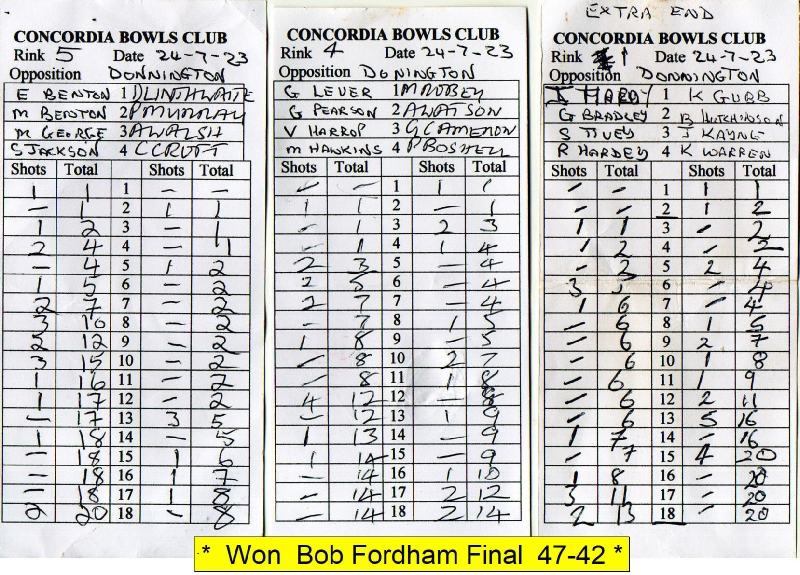 CONCORDIA BOWLS CLUB
Rink 5 Date 24-7-23
Opposition DONNINGTON
E BENTON 1 D LINTHWAITE
M BENTON 2 P MURRAY
M GEORGE 3 A WALSH
S JACKSON 4 C CROFT
Shots Total Shots Total
1 1 1 - -
- 1 2 1 1
1 2 3 - 1
2 4 4 - 1
- 4 5 1 2
1 5 6 - 2
2 7 7 - 2
3 10 8 - 2
2 12 9 - 2
3 15 10 - 2
1 16 11 - 2
1 17 12 - 2
- 17 13 3 5
1 18 14 - 5
- 18 15 1 6
- 18 16 1 7
- 18 17 1 8
2 20 18 - 8
CONCORDIA BOWLS CLUB
Rink 4 Date 24-7-23
Opposition DONINGTON
G LEVER 1 M ROBEY
G PEARSON 2 A WATSON
V HARROP 3 G CAMERON
M HAWKINS 4 P BOSHELL
Shots Total Shots Total
- - 1 1 1
1 1 2 - 1
- 1 3 2 3
- 1 4 1 4
2 3 5 - 4
2 5 6 - 4
2 7 7 - 4
- 7 8 1 5
1 8 9 - 5
- 8 10 2 7
- 8 11 1 8
4 12 12 - 8
- 12 13 1 9
1 13 14 - 9
1 14 15 - 9
- 14 16 1 10
- 14 17 2 12
- 14 18 2 14
EXTRA END
CONCORDIA BOWLS CLUB
Rink 1 Date 24-7-23
Opposition DONNINGTON
HARDY 1 K GUBB
G BRADLEY 2 B HUTCHINSON
S TIVEY 3 J KAYNE
R HARDEY 4 K WARREN
Shots Total Shots Total
- - 1 1 1
- - 2 1 2
1 1 3 - 2
1 2 4 - 2
- 2 5 2 4
3 5 6 - 4
1 6 7 - 4
- 6 8 1 5
- 6 9 2 7
- 6 10 1 8
- 6 11 1 9
- 6 12 2 11
- 6 13 5 16
1 7 14 - 16
- 7 15 4 20
1 8 16 - 20
3 11 17 - 20
2 13 18 - 20
* Won Bob Fordham Final 47-42 *